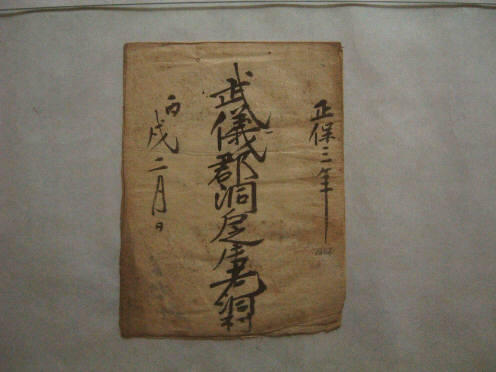 正保三年
武儀郡洞戸庄老洞村
丙戌二月日